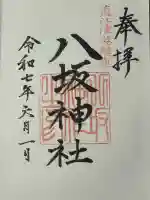 奉拝
八坂神社
令和七年六月一日